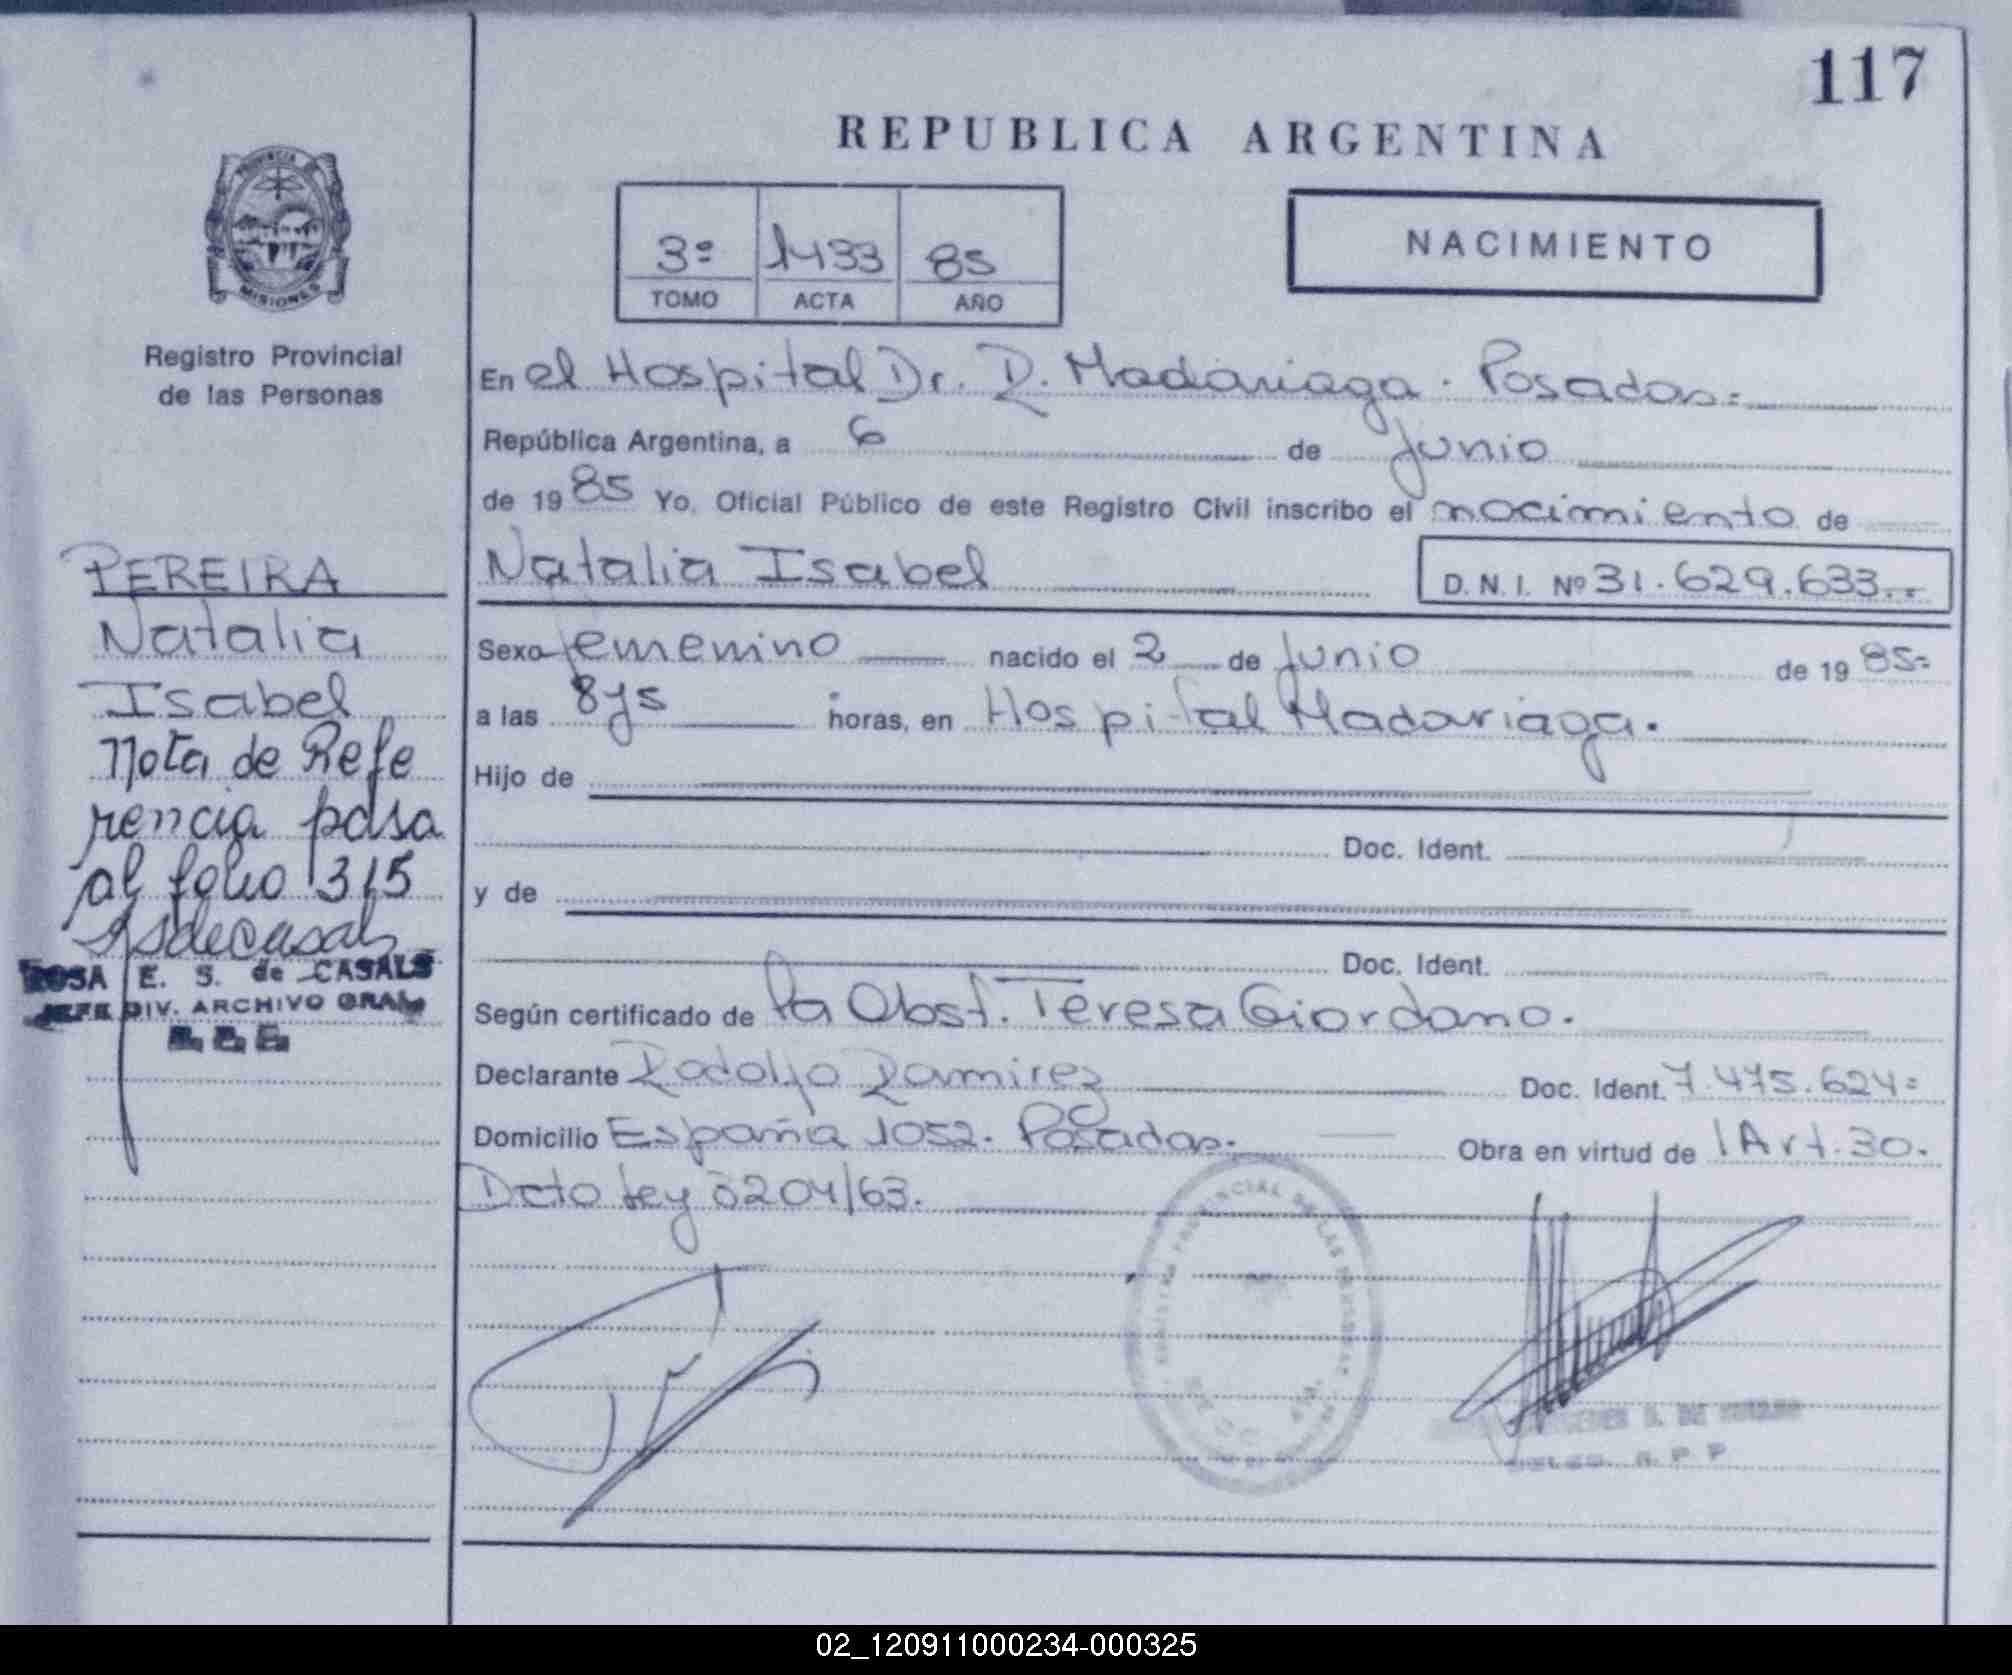 117
REPUBLICA ARGENTINA
3º 1433 85
TOMO ACTA AÑO
NACIMIENTO
PROVINCIA
MISIONES
Registro Provincial
de las Personas
PEREIRA
Natalia
Isabel
Nota de Refe
rencia pasa
al folio 315
ROSA E. S. de CASALS
JEFE DIV. ARCHIVO GRAL
En el Hospital Dr. R. Madariaga. Posadas=
República Argentina, a 6 de Junio
de 1985 Yo, Oficial Público de este Registro Civil inscribo el nacimiento de
Natalia Isabel D.N.I. Nº 31.629.633..
Sexo femenino nacido el 2 de Junio de 1985=
a las 8y5 horas, en Hospital Madariaga.
Hijo de
Doc. Ident.
y de
Doc. Ident.
Según certificado de la Obst. Teresa Giordano.
Declarante Rodolfo Ramirez Doc. Ident. 7.475.624=
Domicilio España 1052. Posadas. Obra en virtud de lArt.30.
Dcto Ley 8204/63.
PROVINCIAL DE LAS
DE
R. P. P.
02_120911000234-000325